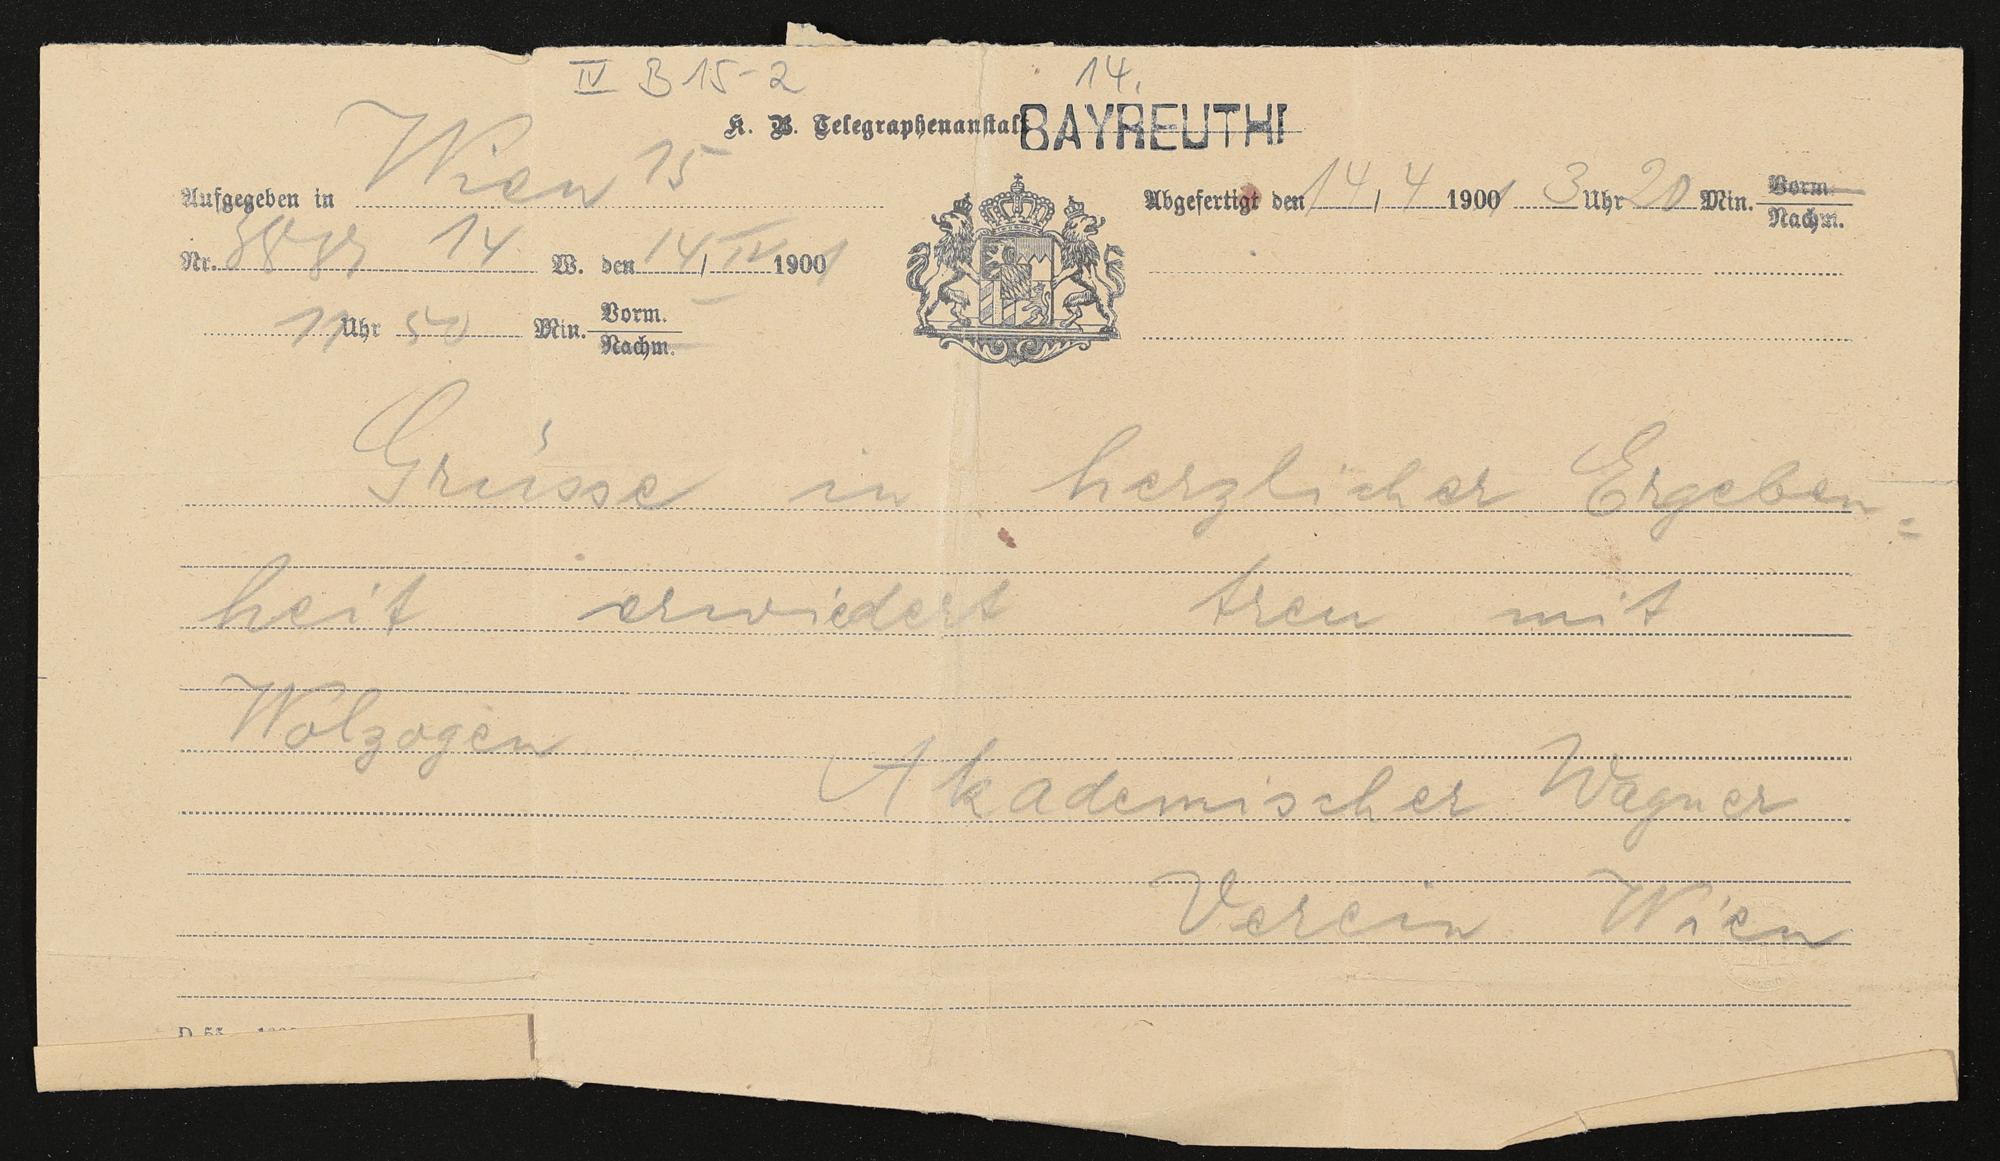 IV B 15-2 14.
K. B. Telegraphenanstalt BAYREUTH
Aufgegeben in Wien 15
Abgefertigt den 14/4 1900 1 3 Uhr 20 Min. Vorm. Nachm.
Nr. 14 W. den 14/IV 1900 1
11 Uhr 50 Min. Vorm. Nachm.
Grüsse in herzlicher Ergeben=
heit erwiedert treu mit
Wolzogen
Akademischer Wagner
Verein Wien